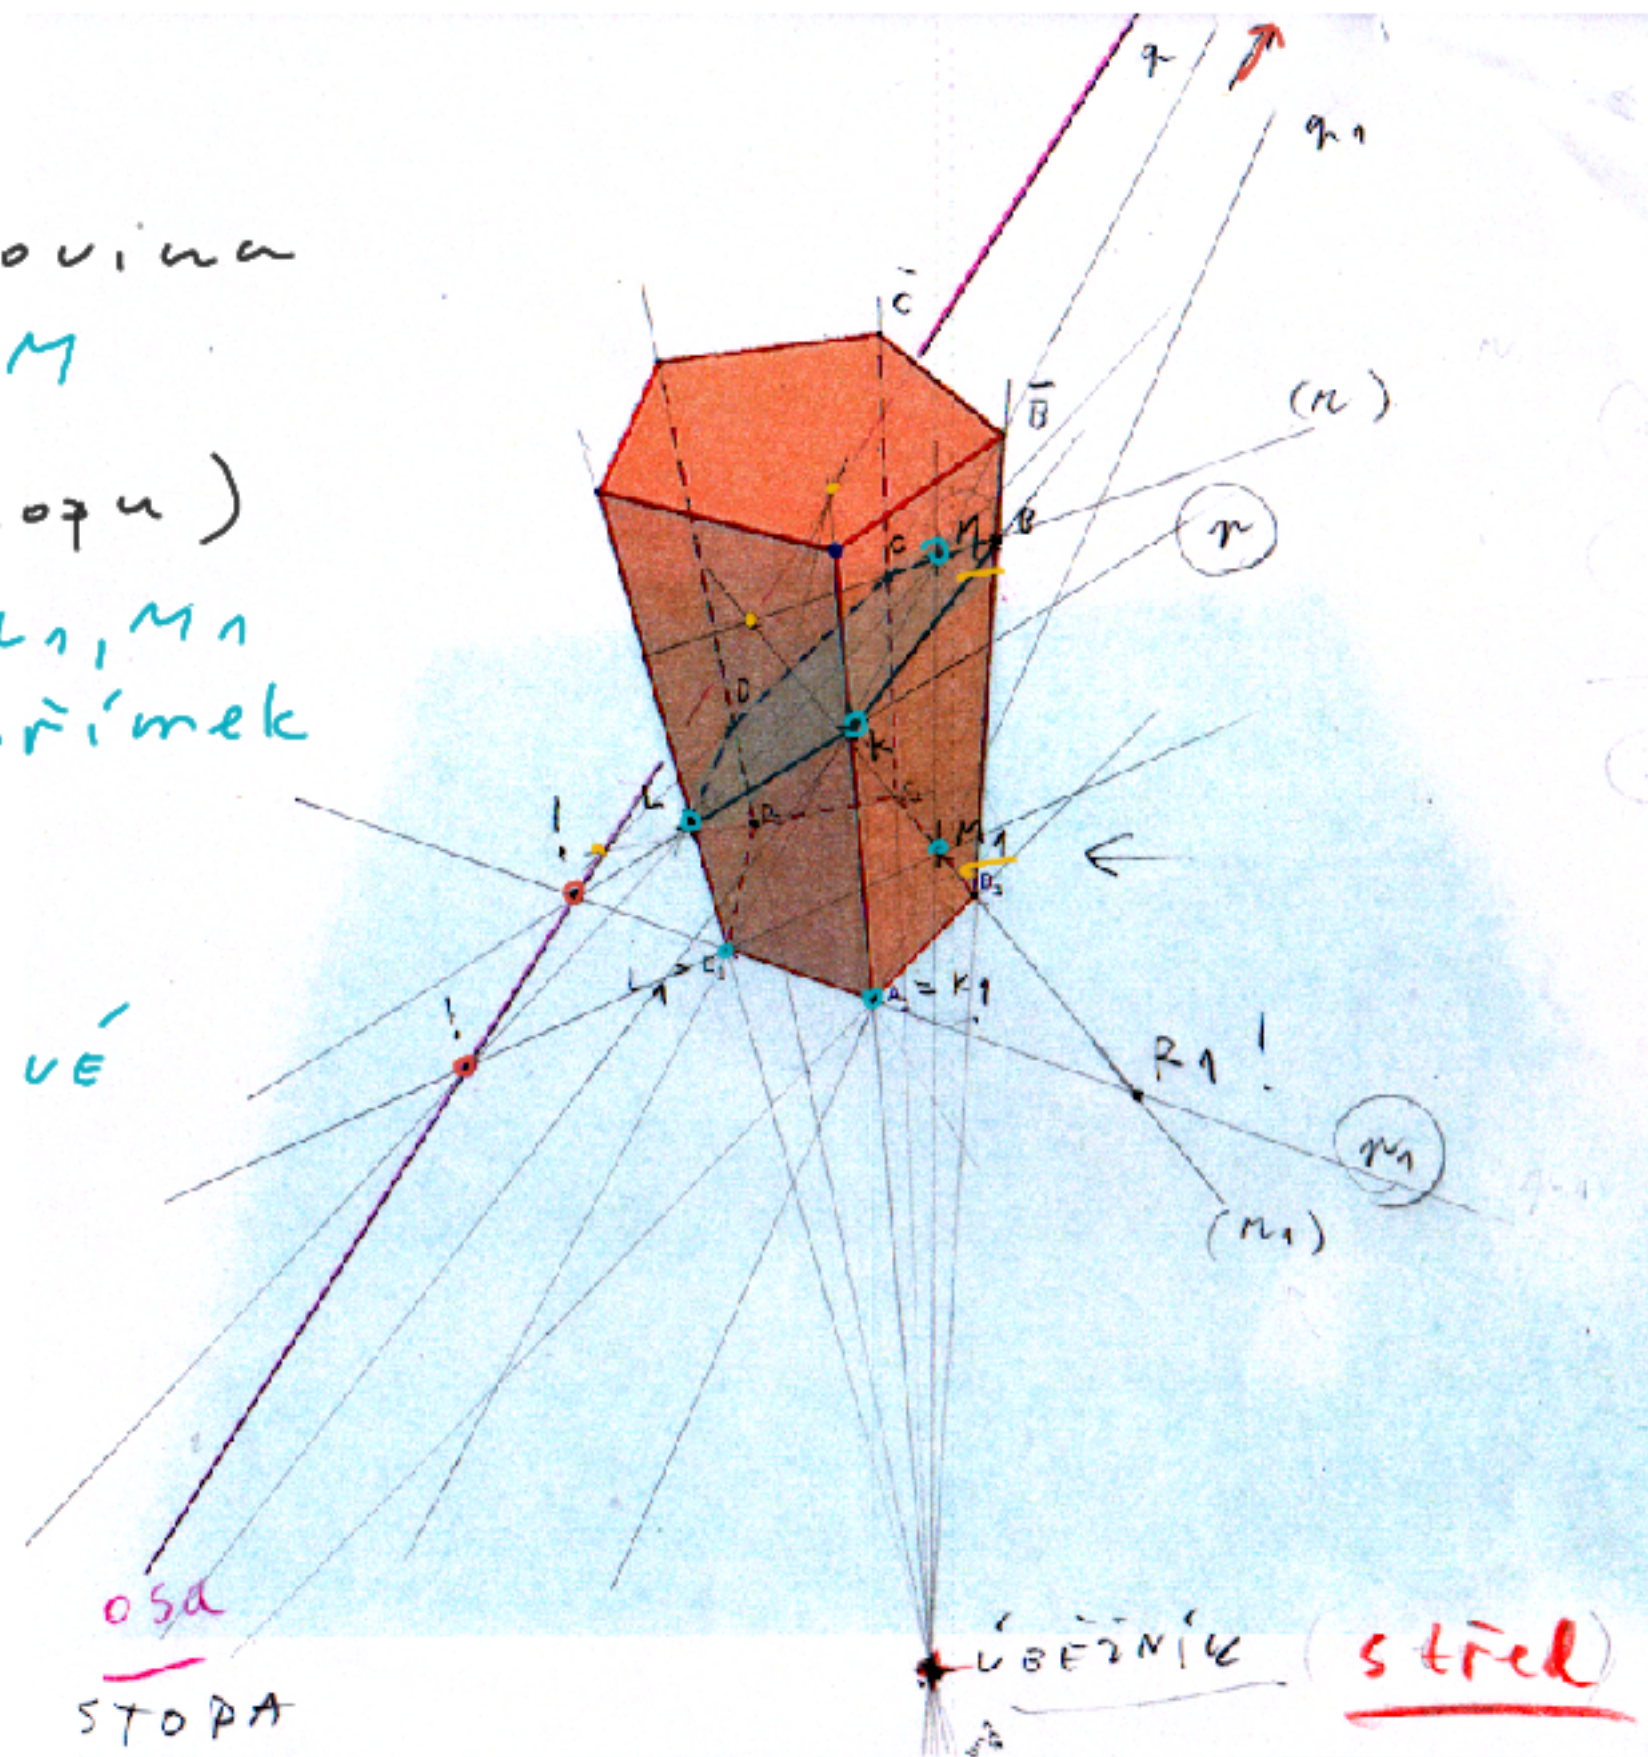 ovina
M
opu)
L1, M1
římek
vé
q
q1
C̄
B̄
(n)
r
C
M
B
D
K
L
D1
C1
M1
B1
!
L1 > E1
A1 = K1
!
R1!
r1
(n1)
osa
STOPA
ÚBĚŽNÍK (střed)